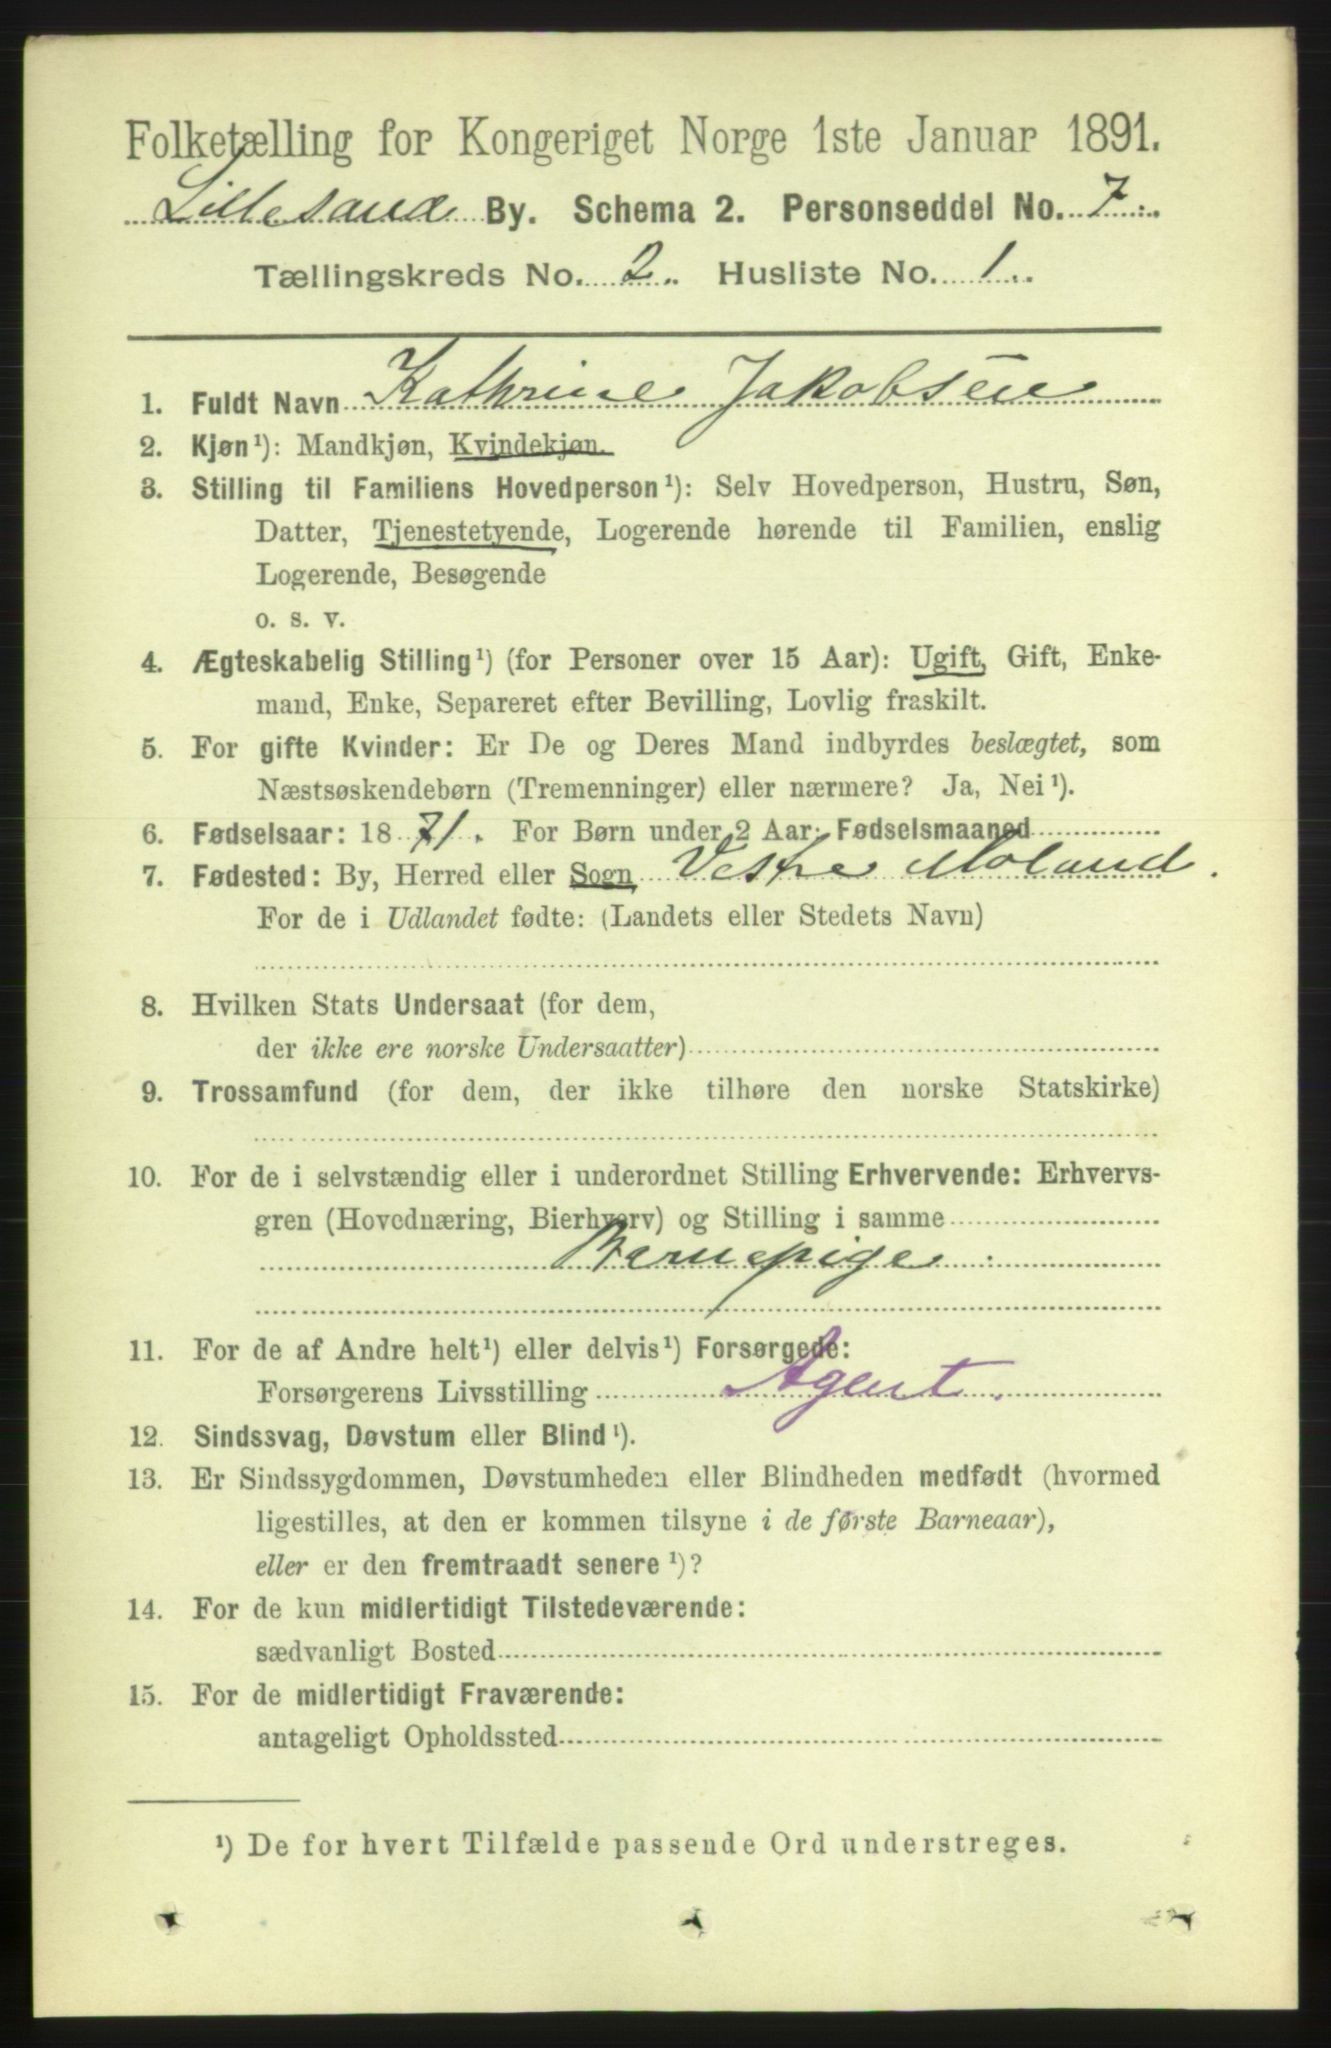 Folketælling for Kongeriget Norge 1ste Januar 1891.
Lillesand By. Schema 2. Personseddel No. 7.
Tællingskreds No. 2. Husliste No. 1.
1. Fuldt Navn Kathrine Jakobsen
2. Kjøn¹): Mandkjøn, Kvindekjøn.
3. Stilling til Familiens Hovedperson¹): Selv Hovedperson, Hustru, Søn,
Datter, Tjenestetyende, Logerende hørende til Familien, enslig
Logerende, Besøgende
o. s. v.
4. Ægteskabelig Stilling¹) (for Personer over 15 Aar): Ugift, Gift, Enke-
mand, Enke, Separeret efter Bevilling, Lovlig fraskilt.
5. For gifte Kvinder: Er De og Deres Mand indbyrdes beslægtet, som
Næstsøskendebørn (Tremenninger) eller nærmere? Ja, Nei¹).
6. Fødselsaar: 1871. For Børn under 2 Aar: Fødselsmaaned
7. Fødested: By, Herred eller Sogn Vestre Moland.
For de i Udlandet fødte: (Landets eller Stedets Navn)
8. Hvilken Stats Undersaat (for dem,
der ikke ere norske Undersaatter)
9. Trossamfund (for dem, der ikke tilhøre den norske Statskirke)
10. For de i selvstændig eller i underordnet Stilling Erhvervende: Erhvervs-
gren (Hovednæring, Bierhverv) og Stilling i samme
Barnepige.
11. For de af Andre helt¹) eller delvis¹) Forsørgede:
Forsørgerens Livsstilling Agent.
12. Sindssvag, Døvstum eller Blind¹).
13. Er Sindssygdommen, Døvstumheden eller Blindheden medfødt (hvormed
ligestilles, at den er kommen tilsyne i de første Barneaar),
eller er den fremtraadt senere¹)?
14. For de kun midlertidigt Tilstedeværende:
sædvanligt Bosted
15. For de midlertidigt Fraværende:
antageligt Opholdssted
¹) De for hvert Tilfælde passende Ord understreges.